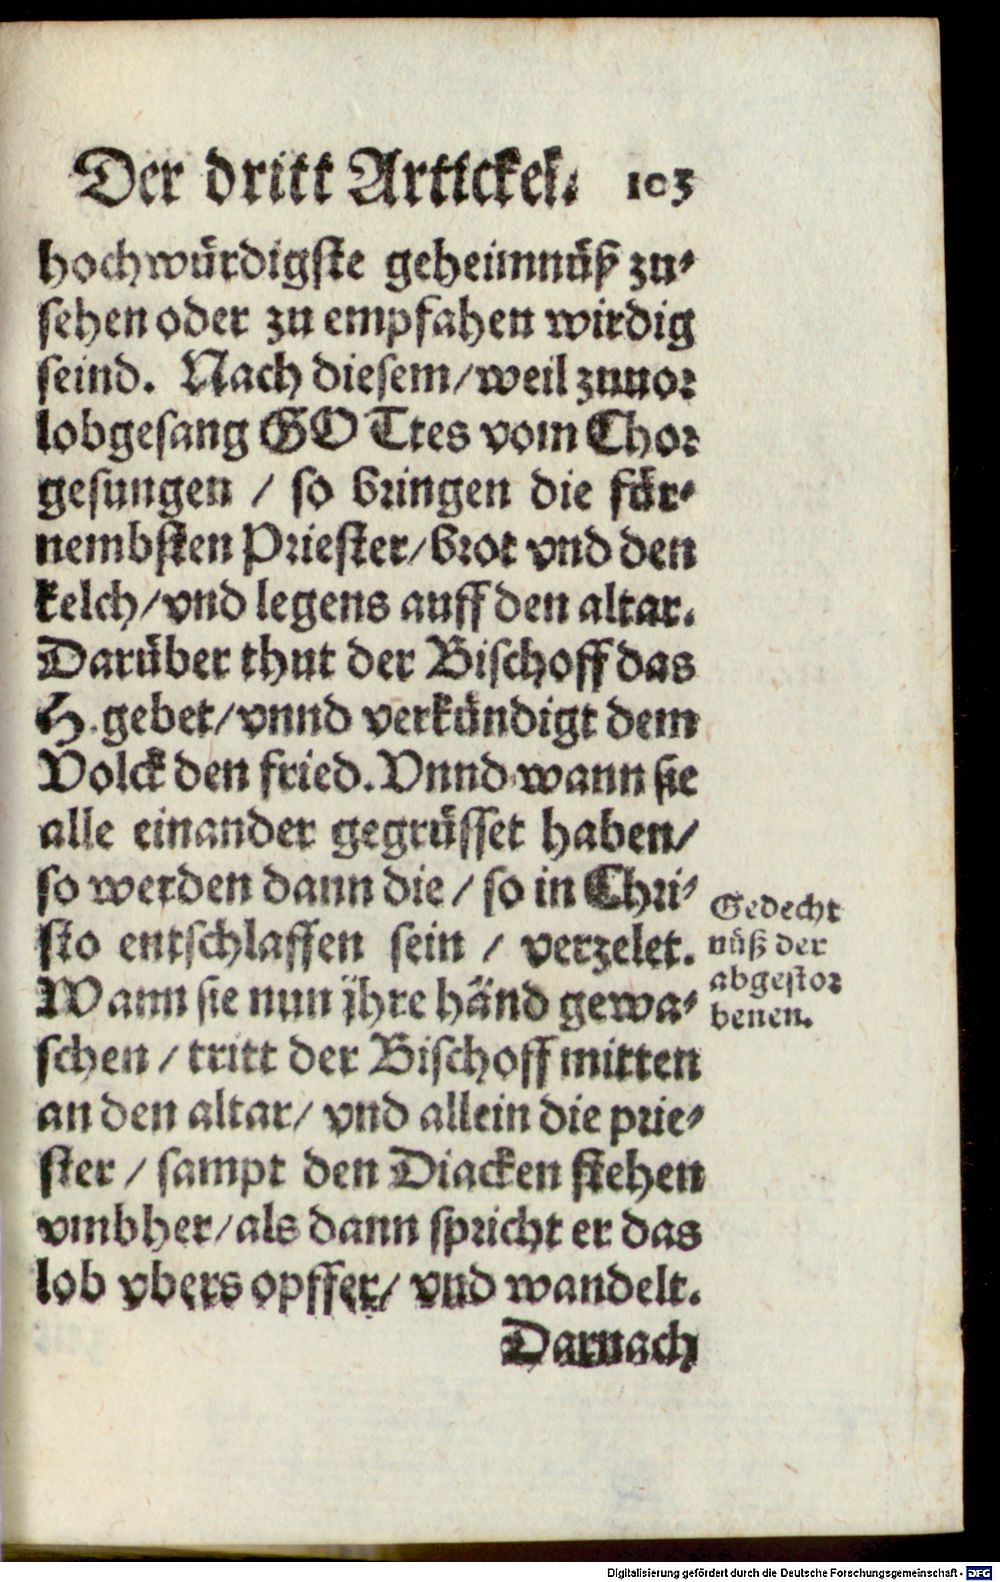 Der dritt Artickel. 103
hochwürdigste geheimnüß zu-
sehen oder zu empfahen wirdig
seind. Nach diesem/weil zuuor
lobgesang GOTtes vom Chor
gesungen / so bringen die für-
nembsten Priester/brot vnd den
kelch/vnd legens auff den altar.
Darüber thut der Bischoff das
H. gebet/vnnd verkündigt dem
Volck den fried. Vnnd wann sie
alle einander gegrüsset haben/
so werden dann die / so in Chri-
sto entschlaffen sein / verzelet.
Wann sie nun jhre händ gewa-
schen / tritt der Bischoff mitten
an den altar/ vnd allein die prie-
ster / sampt den Diacken stehen
vmbher/als dann spricht er das
lob vbers opffer/ vnd wandelt.
Darnach
Gedecht
nüß der
abgestor
benen.
Digitalisierung gefördert durch die Deutsche Forschungsgemeinschaft - DFG